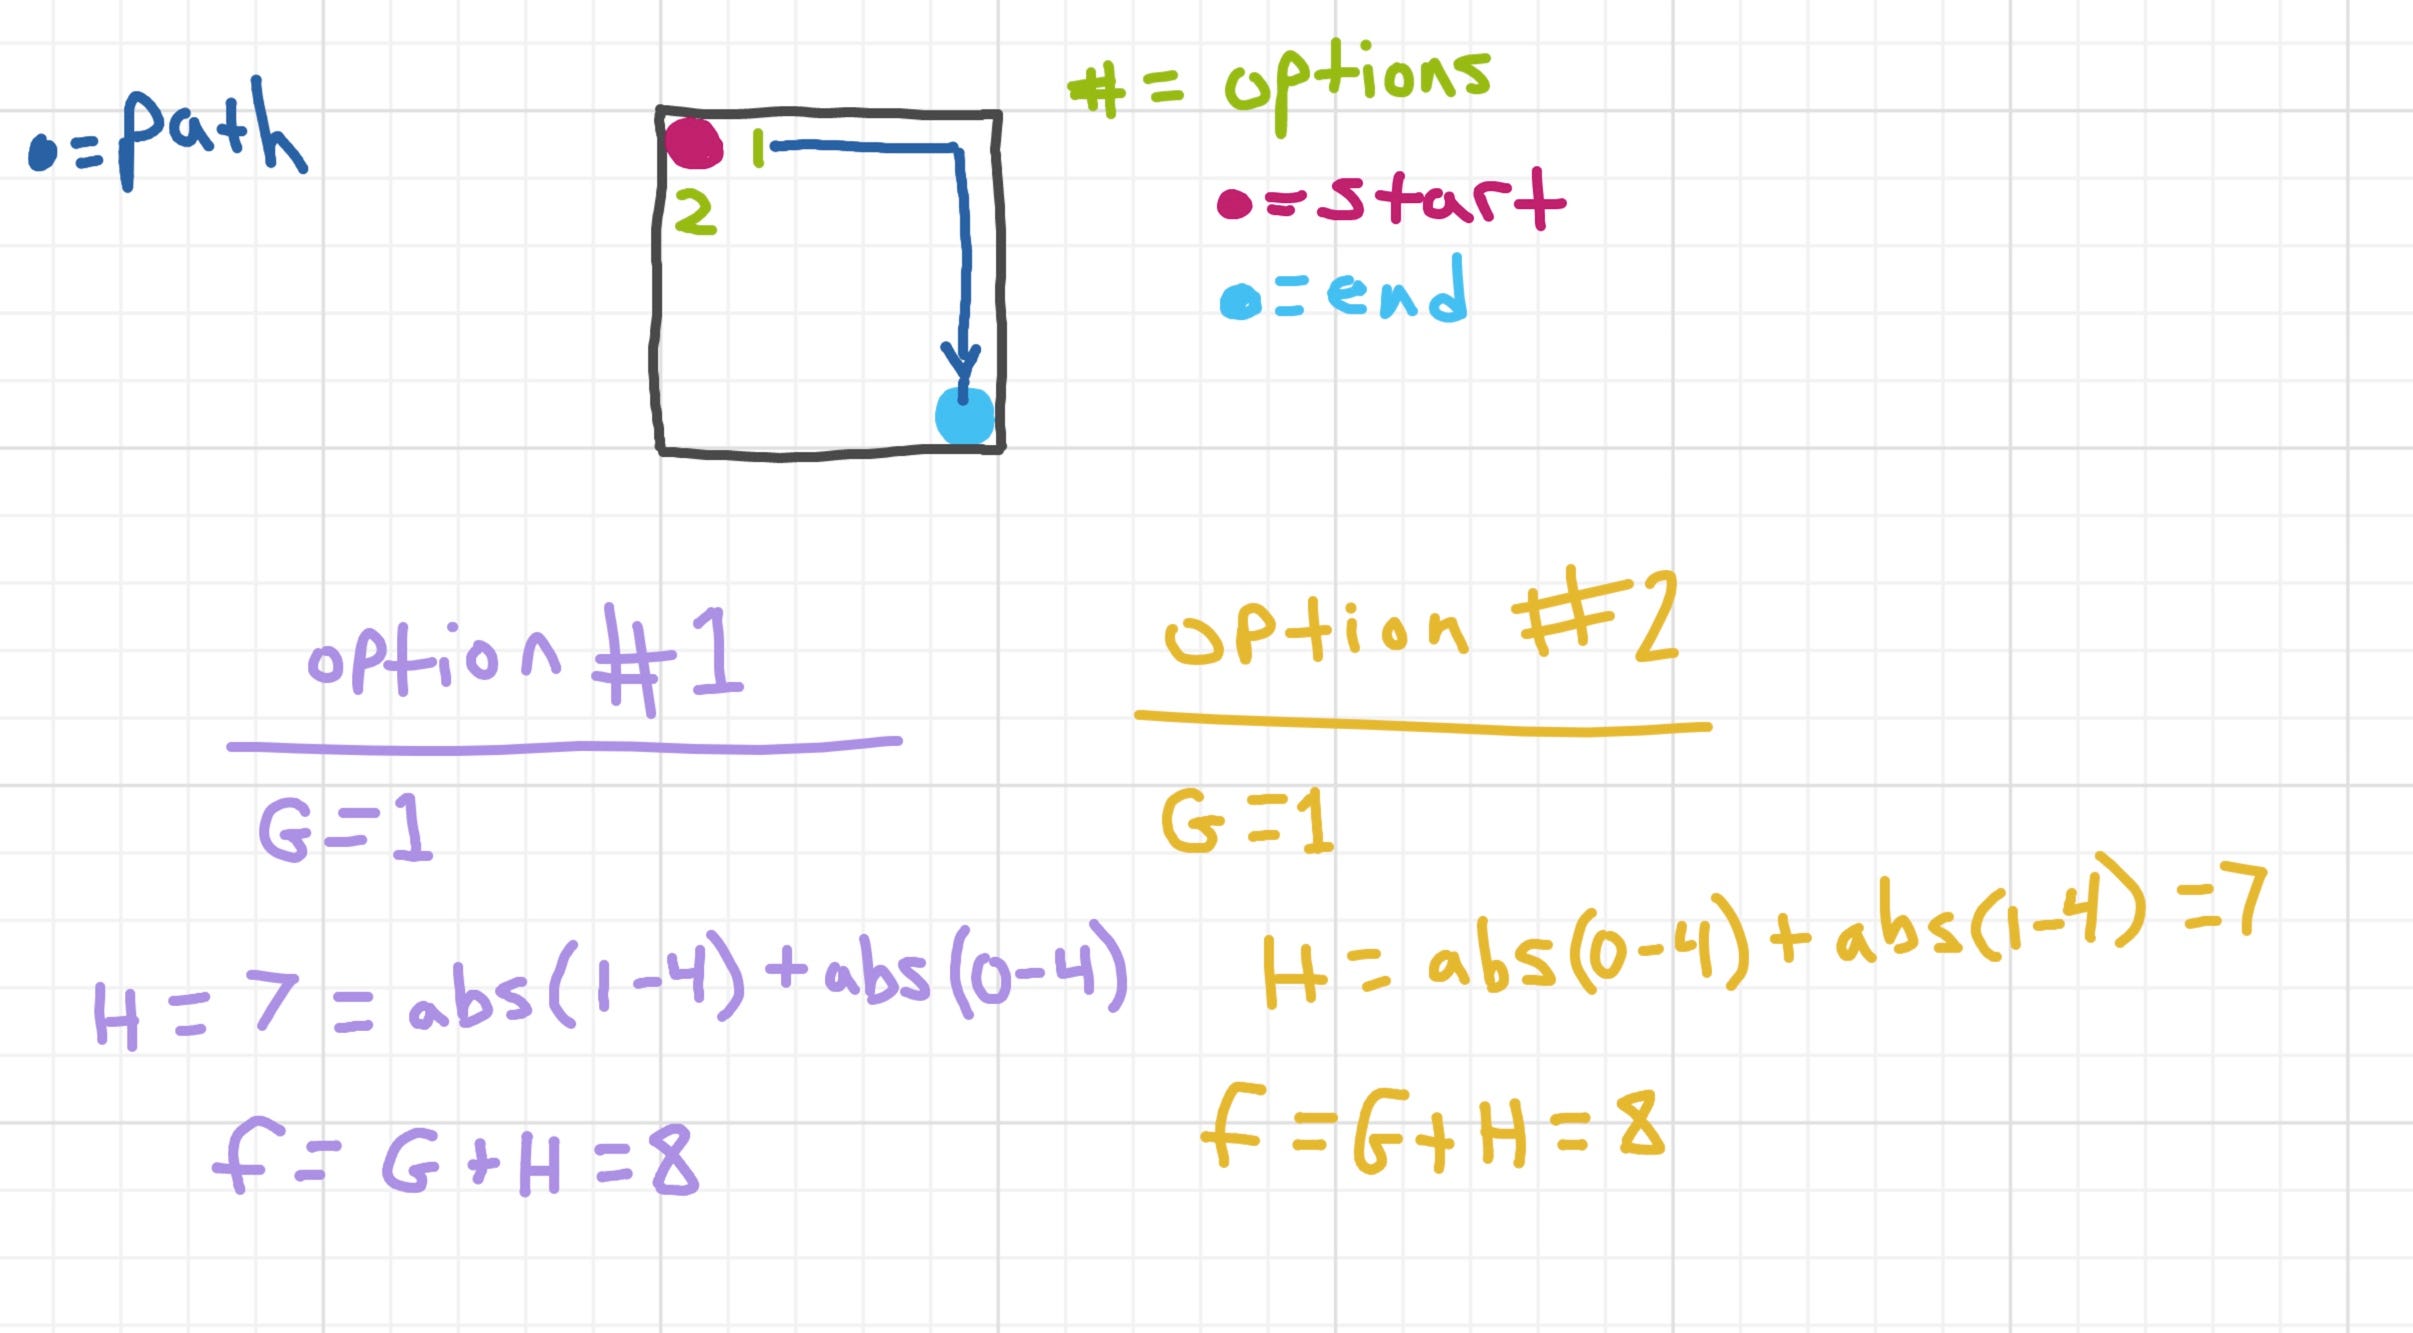 ●=path
1
2
#= options
●=start
●=end
option #1
G=1
H=7=abs(1-4)+abs(0-4)
f=G+H=8
option #2
G=1
H=abs(0-4)+abs(1-4)=7
f=G+H=8